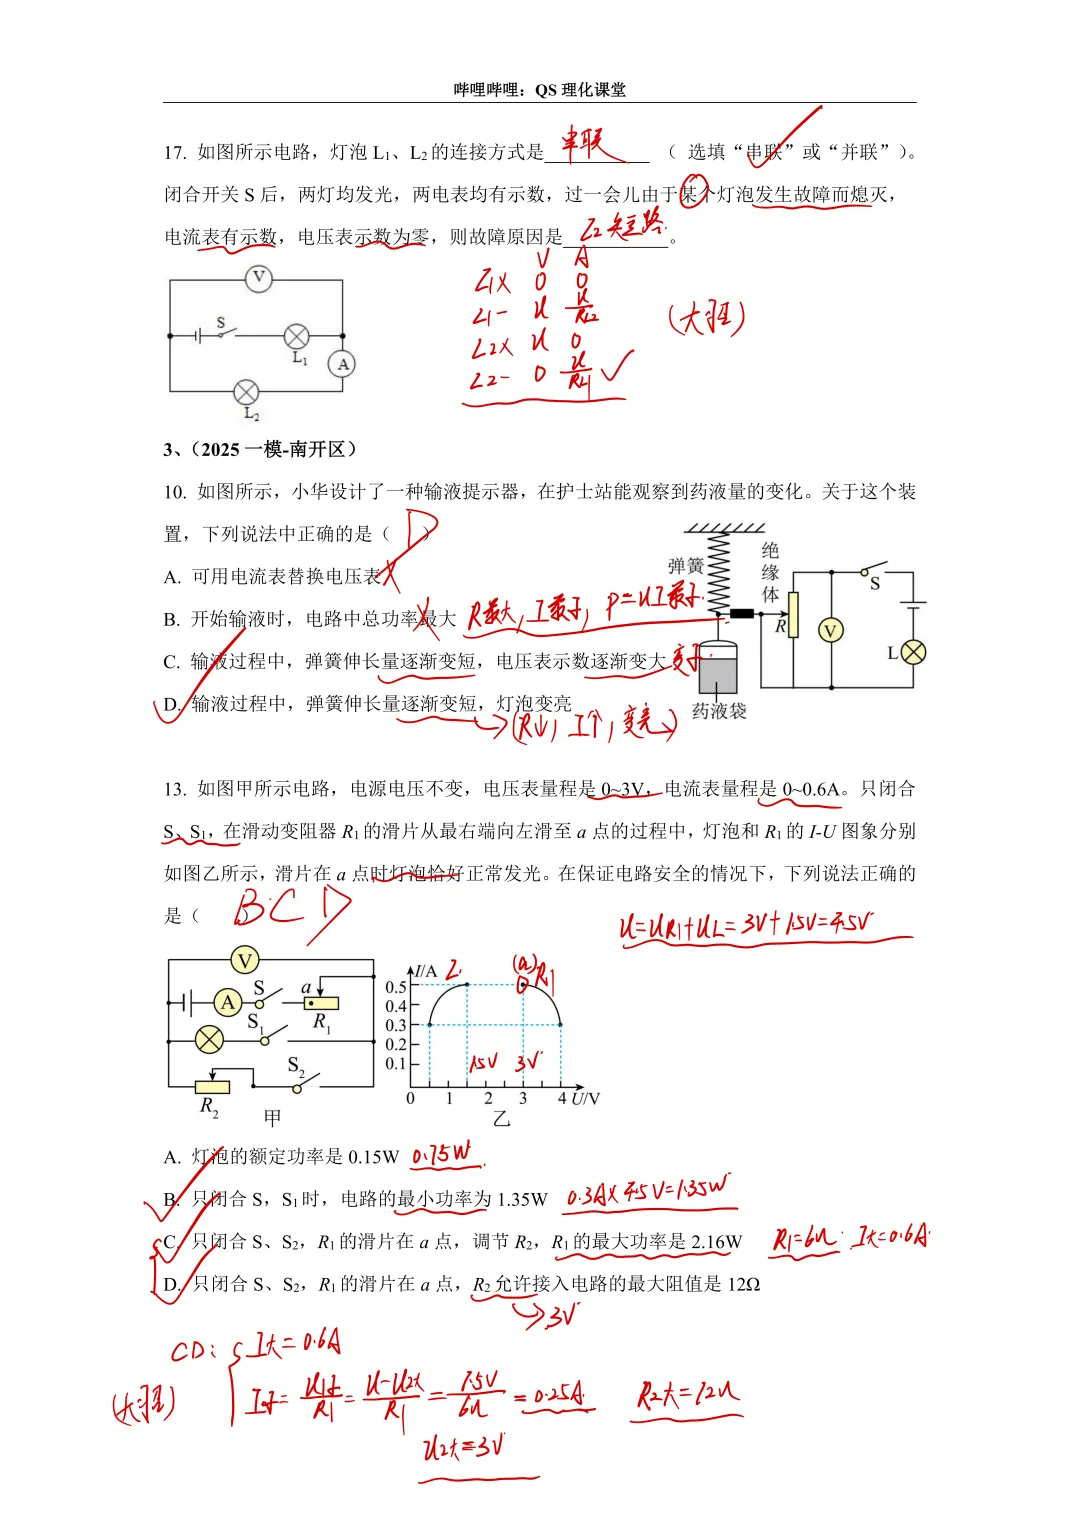 哔哩哔哩：QS 理化课堂
17. 如图所示电路，灯泡 L₁、L₂的连接方式是 串联 （ 选填“串联”或“并联”）。
闭合开关 S 后，两灯均发光，两电表均有示数，过一会儿由于某个灯泡发生故障而熄灭，
电流表有示数，电压表示数为零，则故障原因是 L₂短路 。
V A
L₁× 0 0
L₁- U U/RL₂
L₂× U 0
L₂- 0 U/RL₁
V
S
L₁
A
L₂
3、（2025 一模-南开区）
10. 如图所示，小华设计了一种输液提示器，在护士站能观察到药液量的变化。关于这个装
置，下列说法中正确的是（ D ）
A. 可用电流表替换电压表
B. 开始输液时，电路中总功率最大 R最大，I最小，P=UI最小.
C. 输液过程中，弹簧伸长量逐渐变短，电压表示数逐渐变大 变小.
D. 输液过程中，弹簧伸长量逐渐变短，灯泡变亮
(R↓，I↑，变亮)
弹簧
绝缘体
S
R
V
L
药液袋
13. 如图甲所示电路，电源电压不变，电压表量程是 0~3V，电流表量程是 0~0.6A。只闭合
S、S₁，在滑动变阻器 R₁的滑片从最右端向左滑至 a 点的过程中，灯泡和 R₁的 I-U 图象分别
如图乙所示，滑片在 a 点时灯泡恰好正常发光。在保证电路安全的情况下，下列说法正确的
是（ BCD ）
U=UR₁+UL=3V+1.5V=4.5V
V
A
S
a
R₁
S₁
S₂
R₂
甲
I/A
L
(a)
R₁
0.5
0.4
0.3
0.2
0.1
1.5V 3V
0 1 2 3 4 U/V
乙
A. 灯泡的额定功率是 0.15W 0.75W
B. 只闭合 S，S₁时，电路的最小功率为 1.35W 0.3A×4.5V=1.35W
C. 只闭合 S、S₂，R₁的滑片在 a 点，调节 R₂，R₁的最大功率是 2.16W R₁=6Ω. I大=0.6A.
D. 只闭合 S、S₂，R₁的滑片在 a 点，R₂允许接入电路的最大阻值是 12Ω
3V
CD: I大=0.6A
I小=U₁小/R₁=U-U₂大/R₁=1.5V/6Ω=0.25A. R₂大=12Ω
U₂大=3V